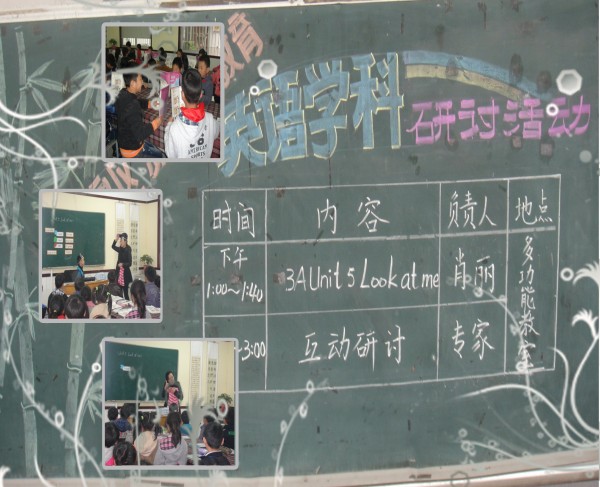 教育
英语学科 研讨活动
时间 内容 负责人 地点
下午 1:00~1:40 3A Unit 5 Look at me 肖丽 多功能教室
~3:00 互动研讨 专家